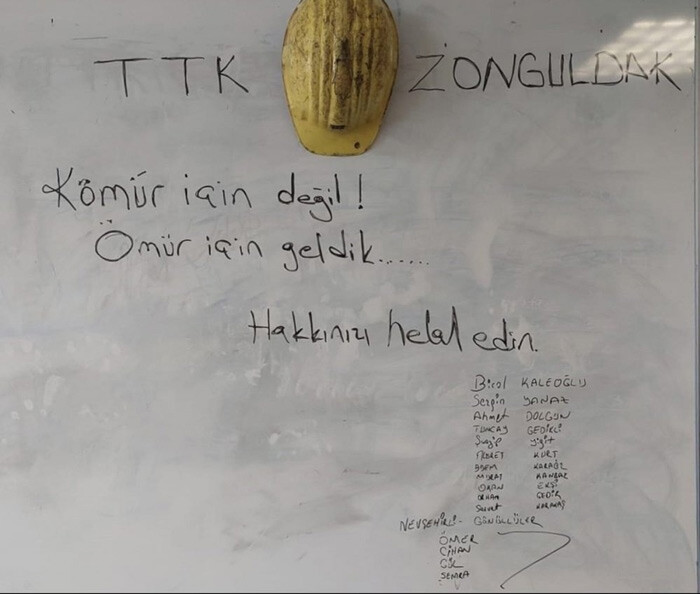 TTK ZONGULDAK
Kömür için değil!
Ömür için geldik......
Hakkınızı helal edin.
Birol KALEOĞLU
Sezgin YANAZ
Ahmet DOLGUN
TUNCAY GEDİKLİ
Şuayip yiğit
FİKRET KURT
ADEM KARAÖZ
MURAT KANBAZ
OKAN EKŞİ
ORHAN GEDİK
Suvat
NEVŞEHİRLİ - GÖNÜLLÜLER
ÖMER
CİHAN
GÜL
SEMRA